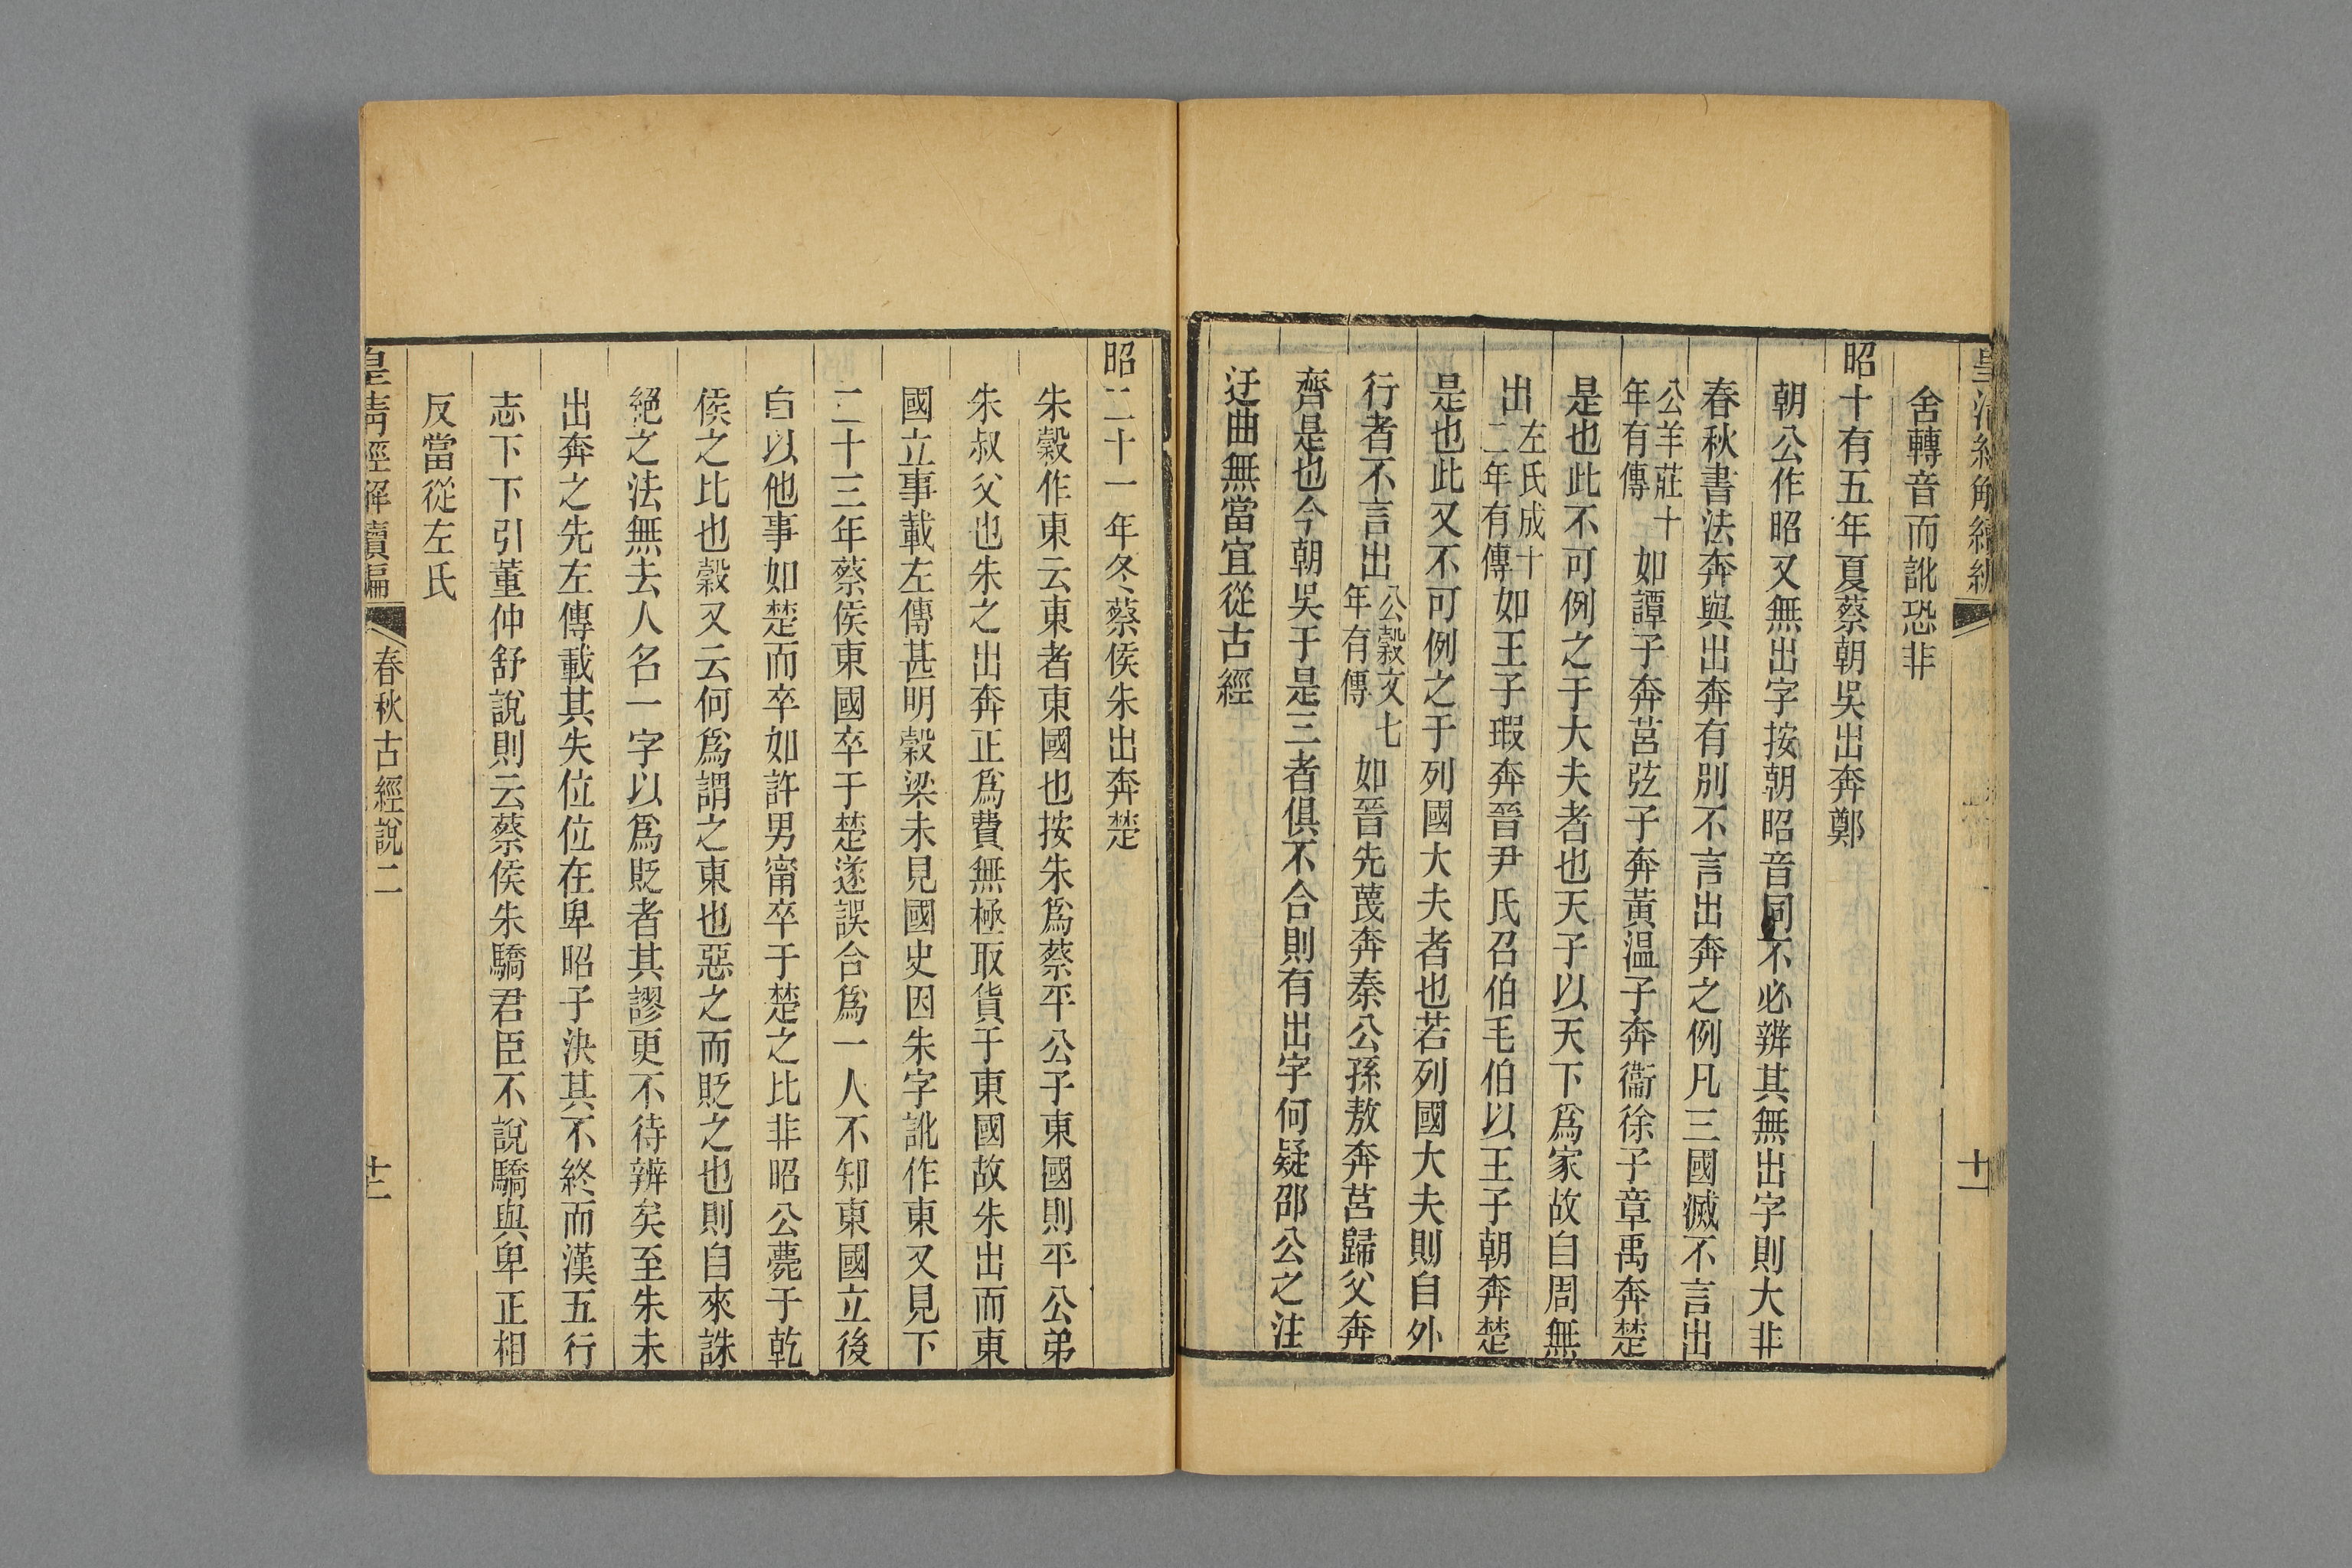 舍轉音而訛恐非
昭十有五年夏蔡朝吳出奔鄭
朝公作昭又無出字按朝昭音同不必辨其無出字則大非
春秋書法奔與出奔有別不言出奔之例凡三國滅不言出
公羊莊十年有傳如譚子奔莒弦子奔黃温子奔衞徐子章禹奔楚
是也此不可例之于大夫者也天子以天下爲家故自周無
出左氏成十二年有傳如王子瑕奔晉尹氏召伯毛伯以王子朝奔楚
是也此又不可例之于列國大夫者也若列國大夫則自外
行者不言出公穀文七年有傳如晉先蔑奔秦公孫敖奔莒歸父奔
齊是也今朝吳于是三者俱不合則有出字何疑邵公之注
迂曲無當宜從古經
十一
昭二十一年冬蔡侯朱出奔楚
朱穀作東云東者東國也按朱爲蔡平公子東國則平公弟
朱叔父也朱之出奔正爲費無極取貨于東國故朱出而東
國立事載左傳甚明穀梁未見國史因朱字訛作東又見下
二十三年蔡侯東國卒于楚遂誤合爲一人不知東國立後
自以他事如楚而卒如許男甯卒于楚之比非昭公薨于乾
侯之比也穀又云何爲謂之東也惡之而貶之也則自來誅
絕之法無去人名一字以爲貶者其謬更不待辨矣至朱未
出奔之先左傳載其失位位在卑昭子決其不終而漢五行
志下下引董仲舒說則云蔡侯朱驕君臣不說驕與卑正相
反當從左氏
皇清經解續編
春秋古經說二
十二